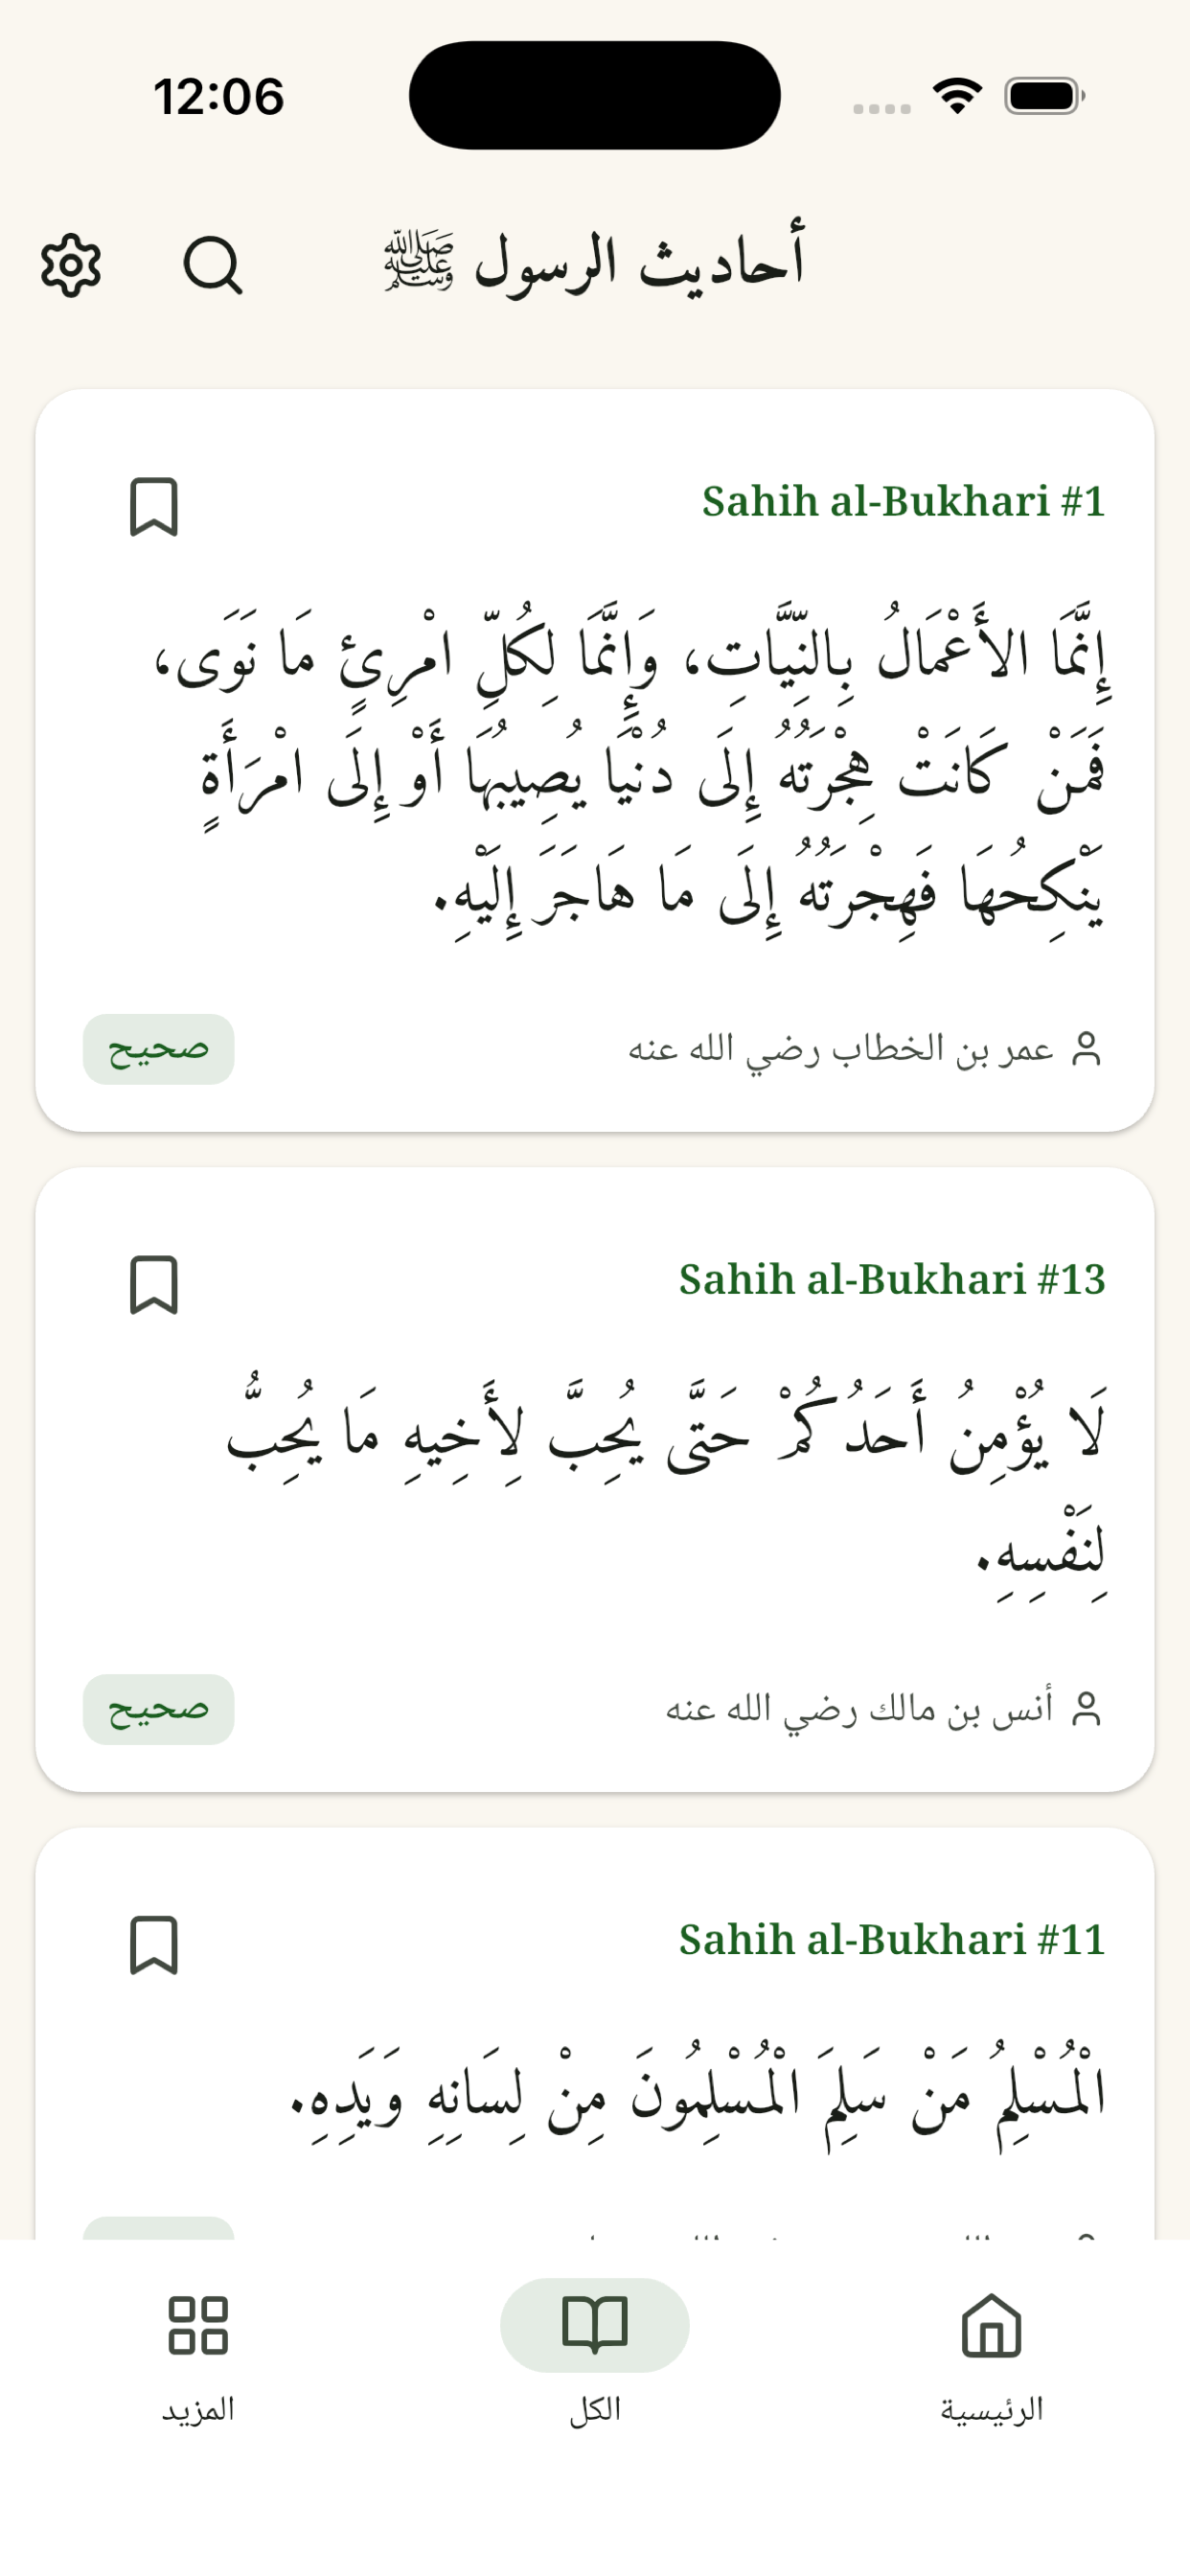 12:06
أحاديث الرسول ﷺ
Sahih al-Bukhari #1
إِنَّمَا الأَعْمَالُ بِالنِّيَّاتِ، وَإِنَّمَا لِكُلِّ امْرِئٍ مَا نَوَى،
فَمَنْ كَانَتْ هِجْرَتُهُ إِلَى دُنْيَا يُصِيبُهَا أَوْ إِلَى امْرَأَةٍ
يَنْكِحُهَا فَهِجْرَتُهُ إِلَى مَا هَاجَرَ إِلَيْهِ.
عمر بن الخطاب رضي الله عنه
صحيح
Sahih al-Bukhari #13
لَا يُؤْمِنُ أَحَدُكُمْ حَتَّى يُحِبَّ لِأَخِيهِ مَا يُحِبُّ
لِنَفْسِهِ.
أنس بن مالك رضي الله عنه
صحيح
Sahih al-Bukhari #11
الْمُسْلِمُ مَنْ سَلِمَ الْمُسْلِمُونَ مِنْ لِسَانِهِ وَيَدِهِ.
الرئيسية
الكل
المزيد